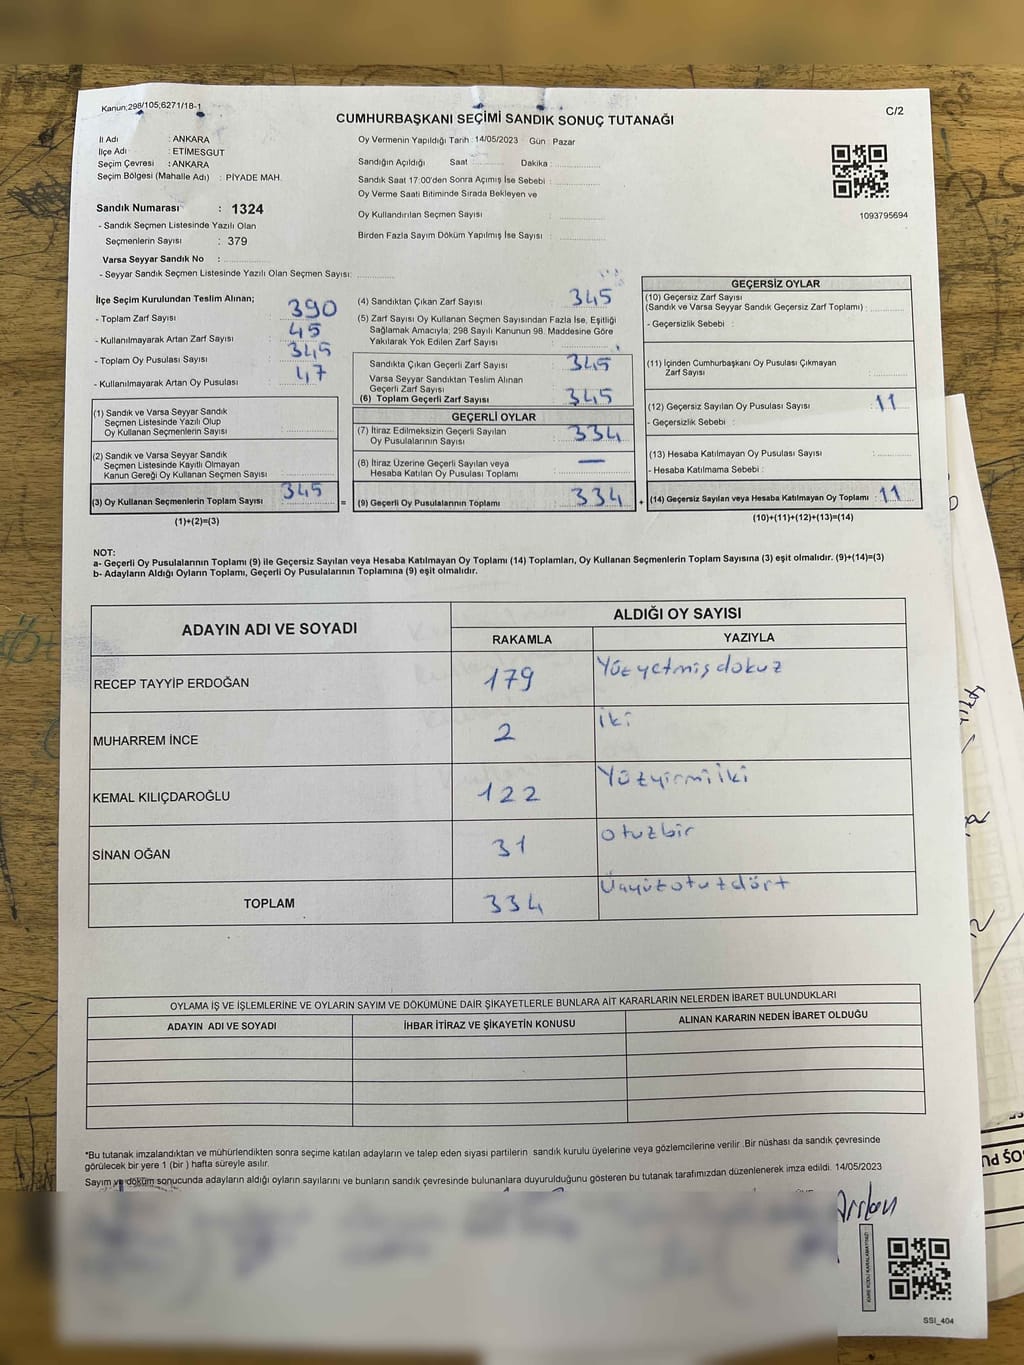 Kanun;298/105;6271/18-1
C/2
CUMHURBAŞKANI SEÇİMİ SANDIK SONUÇ TUTANAĞI
İl Adı : ANKARA
İlçe Adı : ETİMESGUT
Seçim Çevresi : ANKARA
Seçim Bölgesi (Mahalle Adı) : PİYADE MAH.
Sandık Numarası : 1324
- Sandık Seçmen Listesinde Yazılı Olan
Seçmenlerin Sayısı : 379
Varsa Seyyar Sandık No :
- Seyyar Sandık Seçmen Listesinde Yazılı Olan Seçmen Sayısı:
Oy Vermenin Yapıldığı Tarih : 14/05/2023 Gün : Pazar
Sandığın Açıldığı Saat : Dakika :
Sandık Saat 17:00'den Sonra Açımış İse Sebebi :
Oy Verme Saati Bitiminde Sırada Bekleyen ve
Oy Kullandırılan Seçmen Sayısı :
Birden Fazla Sayım Döküm Yapılmış İse Sayısı :
1093795694
İlçe Seçim Kurulundan Teslim Alınan;
- Toplam Zarf Sayısı : 390
- Kullanılmayarak Artan Zarf Sayısı : 45
- Toplam Oy Pusulası Sayısı : 345
- Kullanılmayarak Artan Oy Pusulası : 47
(1) Sandık ve Varsa Seyyar Sandık
Seçmen Listesinde Yazılı Olup
Oy Kullanan Seçmenlerin Sayısı :
(2) Sandık ve Varsa Seyyar Sandık
Seçmen Listesinde Kayıtlı Olmayan
Kanun Gereği Oy Kullanan Seçmen Sayısı :
(3) Oy Kullanan Seçmenlerin Toplam Sayısı : 345 =
(1)+(2)=(3)
(4) Sandıktan Çıkan Zarf Sayısı : 345
(5) Zarf Sayısı Oy Kullanan Seçmen Sayısından Fazla İse, Eşitliği
Sağlamak Amacıyla; 298 Sayılı Kanunun 98. Maddesine Göre
Yakılarak Yok Edilen Zarf Sayısı :
Sandıkta Çıkan Geçerli Zarf Sayısı : 345
Varsa Seyyar Sandıktan Teslim Alınan
Geçerli Zarf Sayısı :
(6) Toplam Geçerli Zarf Sayısı : 345
GEÇERLİ OYLAR
(7) İtiraz Edilmeksizin Geçerli Sayılan
Oy Pusulalarının Sayısı : 334
(8) İtiraz Üzerine Geçerli Sayılan veya
Hesaba Katılan Oy Pusulası Toplamı : —
(9) Geçerli Oy Pusulalarının Toplamı : 334 +
GEÇERSİZ OYLAR
(10) Geçersiz Zarf Sayısı
(Sandık ve Varsa Seyyar Sandık Geçersiz Zarf Toplamı) :
- Geçersizlik Sebebi :
(11) İçinden Cumhurbaşkanı Oy Pusulası Çıkmayan
Zarf Sayısı :
(12) Geçersiz Sayılan Oy Pusulası Sayısı : 11
- Geçersizlik Sebebi :
(13) Hesaba Katılmayan Oy Pusulası Sayısı :
- Hesaba Katılmama Sebebi :
(14) Geçersiz Sayılan veya Hesaba Katılmayan Oy Toplamı : 11
(10)+(11)+(12)+(13)=(14)
NOT:
a- Geçerli Oy Pusulalarının Toplamı (9) ile Geçersiz Sayılan veya Hesaba Katılmayan Oy Toplamı (14) Toplamları, Oy Kullanan Seçmenlerin Toplam Sayısına (3) eşit olmalıdır. (9)+(14)=(3)
b- Adayların Aldığı Oyların Toplamı, Geçerli Oy Pusulalarının Toplamına (9) eşit olmalıdır.
ADAYIN ADI VE SOYADI ALDIĞI OY SAYISI
RAKAMLA YAZIYLA
RECEP TAYYİP ERDOĞAN 179 Yüzyetmişdokuz
MUHARREM İNCE 2 iki
KEMAL KILIÇDAROĞLU 122 Yüzyirmiiki
SİNAN OĞAN 31 otuzbir
TOPLAM 334 Üçyüzotuzdört
OYLAMA İŞ VE İŞLEMLERİNE VE OYLARIN SAYIM VE DÖKÜMÜNE DAİR ŞİKAYETLERLE BUNLARA AİT KARARLARIN NELERDEN İBARET BULUNDUKLARI
ADAYIN ADI VE SOYADI İHBAR İTİRAZ VE ŞİKAYETİN KONUSU ALINAN KARARIN NEDEN İBARET OLDUĞU
*Bu tutanak imzalandıktan ve mühürlendikten sonra seçime katılan adayların ve talep eden siyasi partilerin sandık kurulu üyelerine veya gözlemcilerine verilir .Bir nüshası da sandık çevresinde
görülecek bir yere 1 (bir ) hafta süreyle asılır.
Sayım ve döküm sonucunda adayların aldığı oyların sayılarını ve bunların sandık çevresinde bulunanlara duyurulduğunu gösteren bu tutanak tarafımızdan düzenlenerek imza edildi. 14/05/2023
Arslan
SSI_404